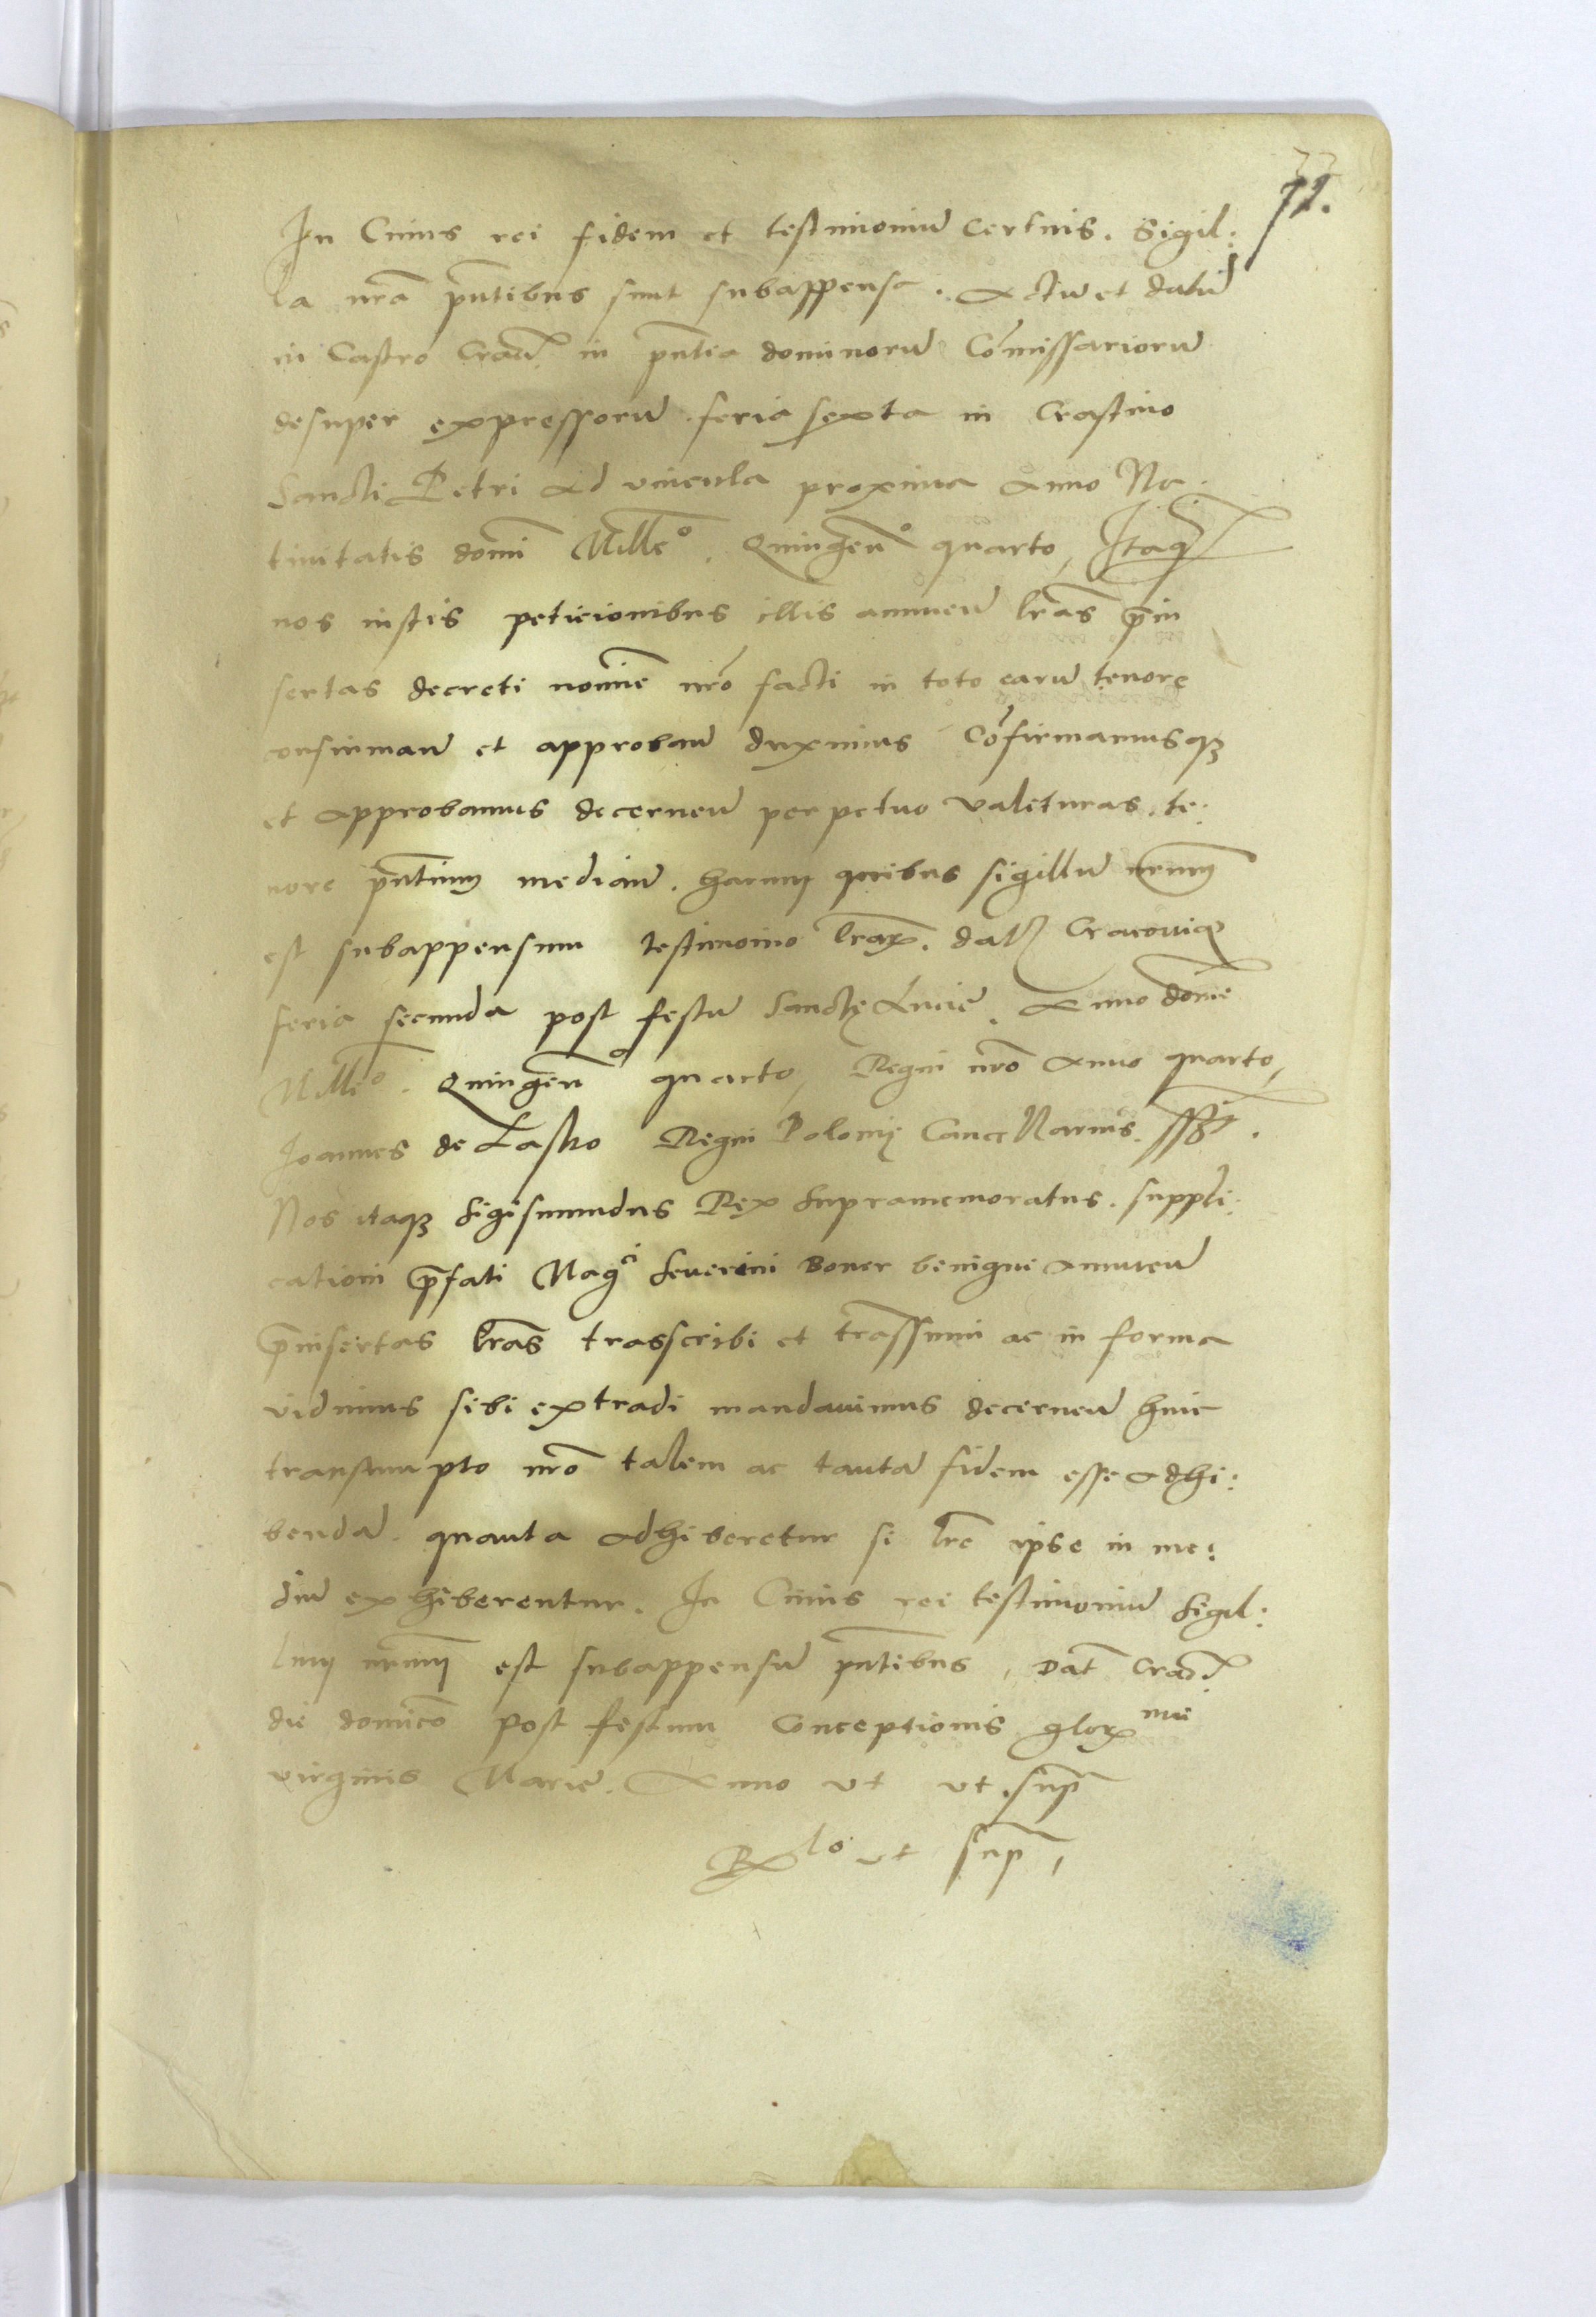 71.
In Cuius rei fidem et testimoniū Certius. Sigil:
la nrā pn̄tibus sunt subappensa. Actū et datū
in Castro Crac̄. in pn̄tia dominorū Cōmissariorū
desuper expressorū feria sexta in Crastino
Sancti Petri Ad vincula proxima Anno Na:
tiuitatis domī Mill̄o. Quingen̄o quarto, Itaq̄
nos iustis peticionibus illis annuen̄ lrās p̄in
sertas decreti nomīe nrō facti in toto earū tenore
confirman̄ et approban̄ duximus Cōfirmamusqꝫ
et Approbamus decernen̄ perpetuo valituras. te:
nore pn̄tium median̄. harum quibus sigillū nrūm
est subappensum testimonio lrāꝝ. datꝫ Cracouię
feria secunda post festū Sanctę Lucie. Anno domī
Mill̄o. Quingen̄o quarto, Regni nrō Anno quarto,
Joannes de Lasko Regni Polonię Cancellarius sspt.
Nos itaqꝫ Sigismundus Rex Supramemoratus. suppli:
cationi p̄fati Magci Seuerini Boner benigne Annuen̄
p̄insertas lrās trasscribi et trāssumi ac in forma
vidimus sibi extradi mandauimus decernen̄ huic
transumpto nrō talem ac tantā fidem esse Adhi:
bendā. quanta Adhiberetur si lrē ipse in me:
diū exhiberentur. In Cuius rei testimoniū Sigil:
lum nrūm est subappensū pn̄tibus, Dat̄ Crac̄.
die domīco post festum Conceptionis gloꝝme
virginis Marie. Anno vt vt. sup̄
Rlo vt sup̄,